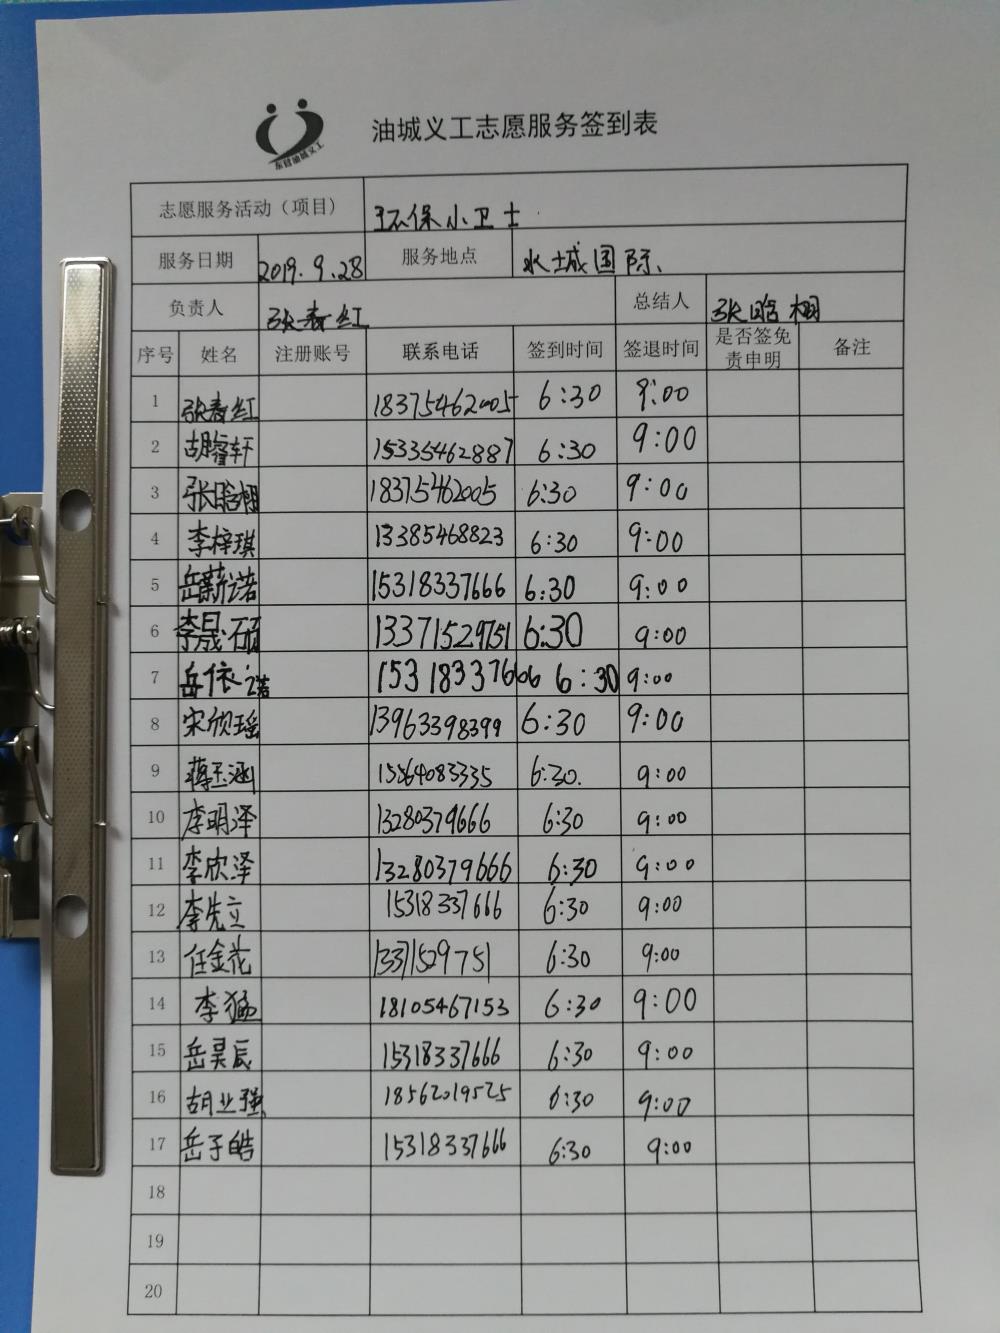 东营油城义工
油城义工志愿服务签到表
志愿服务活动（项目） 环保小卫士
服务日期 2019.9.28 服务地点 水城国际
负责人 张春红 总结人 张晗栩
序号 姓名 注册账号 联系电话 签到时间 签退时间 是否签免责申明 备注
1 张春红 18375462005 6:30 9:00
2 胡睿轩 15335462887 6:30 9:00
3 张晗栩 18375462005 6:30 9:00
4 李梓琪 13385468823 6:30 9:00
5 岳薪诺 15318337666 6:30 9:00
6 李晟硕 13371529751 6:30 9:00
7 岳依诺 15318337666 6:30 9:00
8 宋欣瑶 13963398399 6:30 9:00
9 蒋玉涵 15564083335 6:30 9:00
10 李明泽 13280379666 6:30 9:00
11 李欣泽 13280379666 6:30 9:00
12 李先立 15318337666 6:30 9:00
13 任金花 13371529751 6:30 9:00
14 李猛 18105467153 6:30 9:00
15 岳昊辰 15318337666 6:30 9:00
16 胡业强 18562019525 6:30 9:00
17 岳子皓 15318337666 6:30 9:00
18
19
20